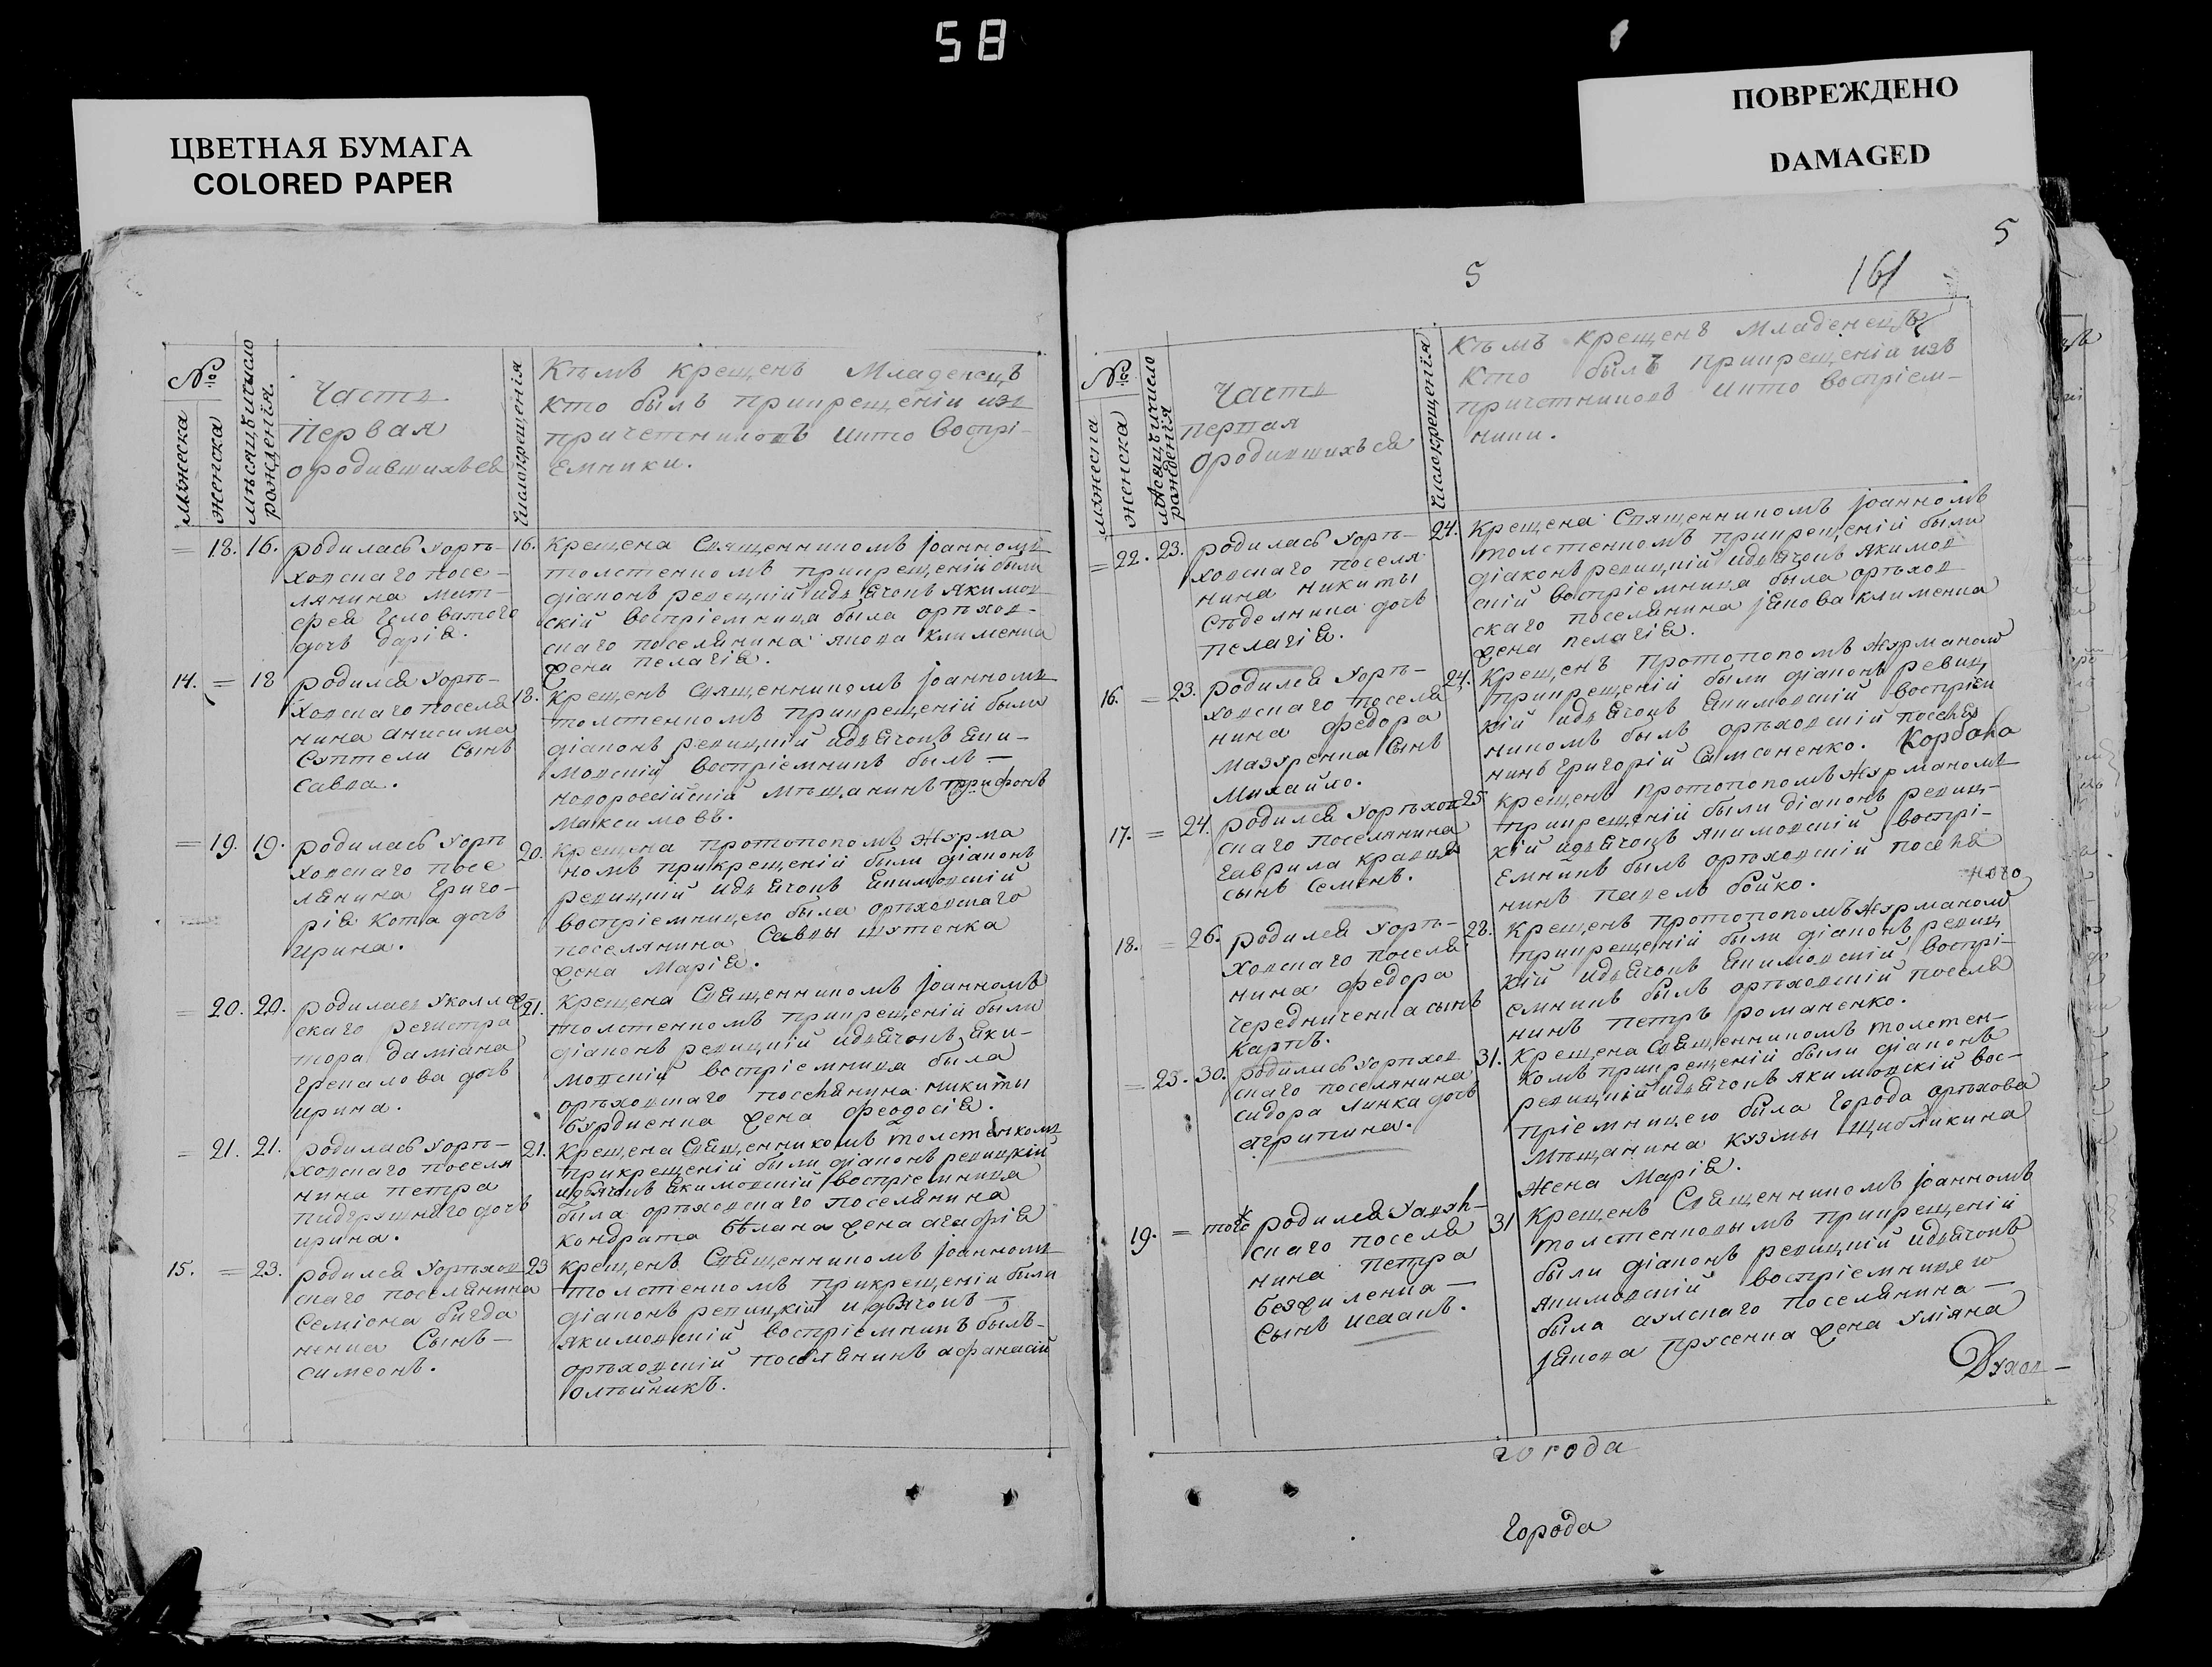 58
ЦВЕТНАЯ БУМАГА
COLORED PAPER
ПОВРЕЖДЕНО
DAMAGED
5
5
161
№
мѫжеска
женска
мѣсяцъ ичисло
рожденія.
Часть
Первая
ородившихься
Число крещенія
Кѣмъ крещенъ Младенецъ
кто былъ приирещеніи изъ
причетниковъ икто воспрі-
емники.
= 18. 16.
родилась уорѣ-
ховскаго посе-
лянина мат-
фея головатого
дочь дарія.
16.
Крещена Священникомъ іоанномъ
толстенкомъ прикрещеній были
діаконъ ревицкій идьячокъ якимов
скій воспріемница была орѣхов-
скаго поселянина якова клименка
жена пелагія.
14. = 18
родился уорѣ-
ховскаго поселя
нина анисима
Суптели Сынъ
Савва.
18.
Крещенъ священникомъ іоанномъ
толстенкомъ прикрещеній были
діаконъ ревицкій идьячокъ яки-
мовскій воспріемникъ былъ —
новоросссійскій мѣщанинъ трифонъ
Максимовъ.
= 19. 19.
родилась уорѣ
ховскаго посе
лянина григо-
рія кота дочь
ирина.
20.
Крещена протопопомъ Журма
номъ прикрещеній были діаконъ
ревицкій идьячокъ якимовскій
воспріемницею была орѣховскаго
поселянина Саввы шутенка
жена Марія.
= 20. 20.
родилась уколле
скаго регистра
тора даміана
грекалова дочь
ирина.
21.
Крещена Священникомъ іоанномъ
толстенкомъ прикрещеній были
діаконъ ревицкій идьячокъ яки-
мовскій воспріемница была
орѣховскаго поселянина никиты
бурдиенка жена феодосія.
= 21. 21.
родилась уорѣ-
ховскаго поселя
нина петра
пидгрушнаго дочь
ирина.
21.
Крещена Священникомъ толстенкомъ
прикрещеній были діаконъ ревицкій
идьячокъ якимовскій воспріемница
была орѣховскаго поселянина
кондрата бѣлана жена агафія
15. = 23.
родился уорѣхов
скаго поселянина
Семіона
Сынъ —
симеонъ.
23
крещенъ Священникомъ іоанномъ
толстенкомъ прикрещеніи были
діаконъ ревицкій идьячокъ —
якимовскій воспріемникъ былъ-
орѣховскій поселянинъ афанасій
олѣйникъ.
№
мѫжеска
женска
мѣсяцъ ичисло
рожденія
Часть
первая
ородившихься
Число крещенія
Кѣмъ крещенъ младенецъ
кто былъ прикрещеніи изъ
причетниковъ икто воспріем-
ники.
= 22. 23.
родилась уорѣ-
ховскаго поселя
нина никиты
Сѣделника дочь
пелагія.
24.
Крещена Священникомъ іоанномъ
толстенкомъ прикрещеній были
діаконъ ревицкій идьячокъ якимов
скій воспріемница была орѣхов
скаго поселянина іакова клименка
жена пелагія.
16. = 23.
родился уорѣ-
ховскаго поселя
нина федора
мазуренка Сынъ
михайло.
24.
Крещенъ протопопомъ Журманом
прикрещеній были діаконъ ревиц
кій идьячокъ якимовскій воспріем
никомъ былъ орѣховскій поселя
нинъ григорій Самсоненко.
17. = 24.
родился уорѣхов
скаго поселянина
гаврила кравця
сынъ семенъ.
25
крещенъ протопопомъ Журманомъ
прикрещеній были діаконъ ревиц-
кій идьячокъ якимовскій воспрі-
емникъ былъ орѣховскій поселя
нинъ павелъ бойко.
18. = 26.
родился уорѣ-
ховскаго поселя
нина федора
чередниченка сынъ
карпъ.
28.
Крещенъ протопопомъ Журманом
прикрещеній были діаконъ ревиц
кій идьячокъ якимовскій воспрі-
емникъ былъ орѣховскій поселя
нинъ петръ романенко.
= 23. 30.
родилась уорѣхов
скаго поселянина
сидора линка дочь
агрипина.
31.
Крещена Священникомъ толстен-
комъ прикрещеній были діаконъ
ревицкій идьячокъ якимовскій вос-
пріемницею была города орѣхова
мѣщанина кузмы щибликина
Жена Марія.
19. = того
родился
скаго поселя
нина петра
безфиленка —
Сынъ исаакъ.
31
Крещенъ Священникомъ іоанномъ
толстенковымъ прикрещеній
были діаконъ ревицкій идьячокъ
якимовскій воспріемницею
была аулскаго поселянина —
іакова прусенка жена уліяна
города
города